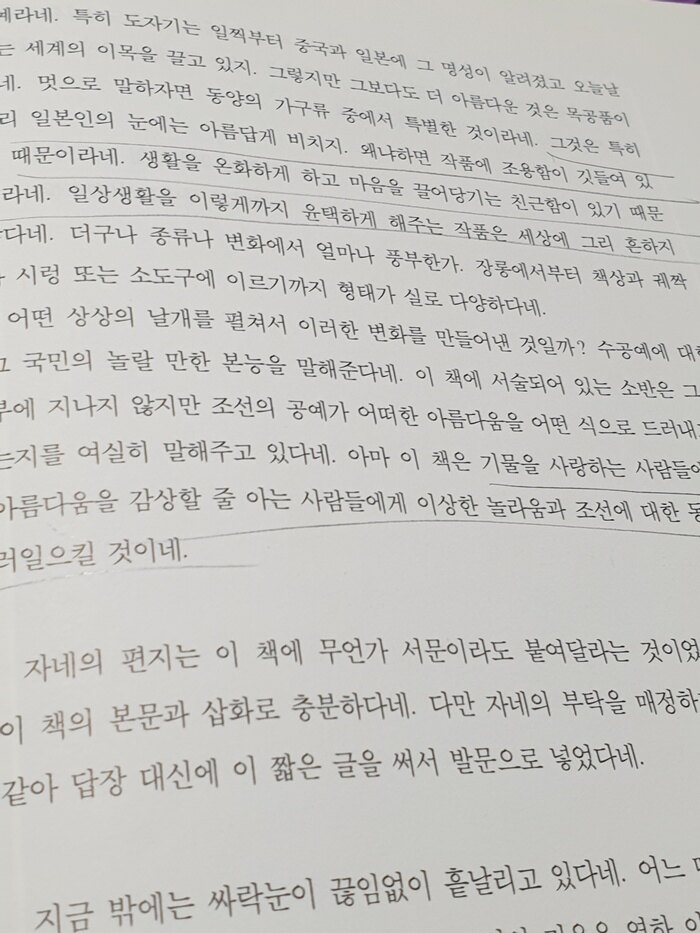 예라네. 특히 도자기는 일찍부터 중국과 일본에 그 명성이 알려졌고 오늘날
는 세계의 이목을 끌고 있지. 그렇지만 그보다도 더 아름다운 것은 목공품이
네. 멋으로 말하자면 동양의 가구류 중에서 특별한 것이라네. 그것은 특히
리 일본인의 눈에는 아름답게 비치지. 왜냐하면 작품에 조용함이 깃들여 있
때문이라네. 생활을 온화하게 하고 마음을 끌어당기는 친근함이 있기 때문
라네. 일상생활을 이렇게까지 윤택하게 해주는 작품은 세상에 그리 흔하지
다네. 더구나 종류나 변화에서 얼마나 풍부한가. 장롱에서부터 책상과 궤짝
시렁 또는 소도구에 이르기까지 형태가 실로 다양하다네.
어떤 상상의 날개를 펼쳐서 이러한 변화를 만들어낸 것일까? 수공예에 대한
그 국민의 놀랄 만한 본능을 말해준다네. 이 책에 서술되어 있는 소반은 그
부에 지나지 않지만 조선의 공예가 어떠한 아름다움을 어떤 식으로 드러내
는지를 여실히 말해주고 있다네. 아마 이 책은 기물을 사랑하는 사람들에
아름다움을 감상할 줄 아는 사람들에게 이상한 놀라움과 조선에 대한 동
러일으킬 것이네.
자네의 편지는 이 책에 무언가 서문이라도 붙여달라는 것이었
이 책의 본문과 삽화로 충분하다네. 다만 자네의 부탁을 매정하
같아 답장 대신에 이 짧은 글을 써서 발문으로 넣었다네.
지금 밖에는 싸락눈이 끊임없이 흩날리고 있다네. 어느